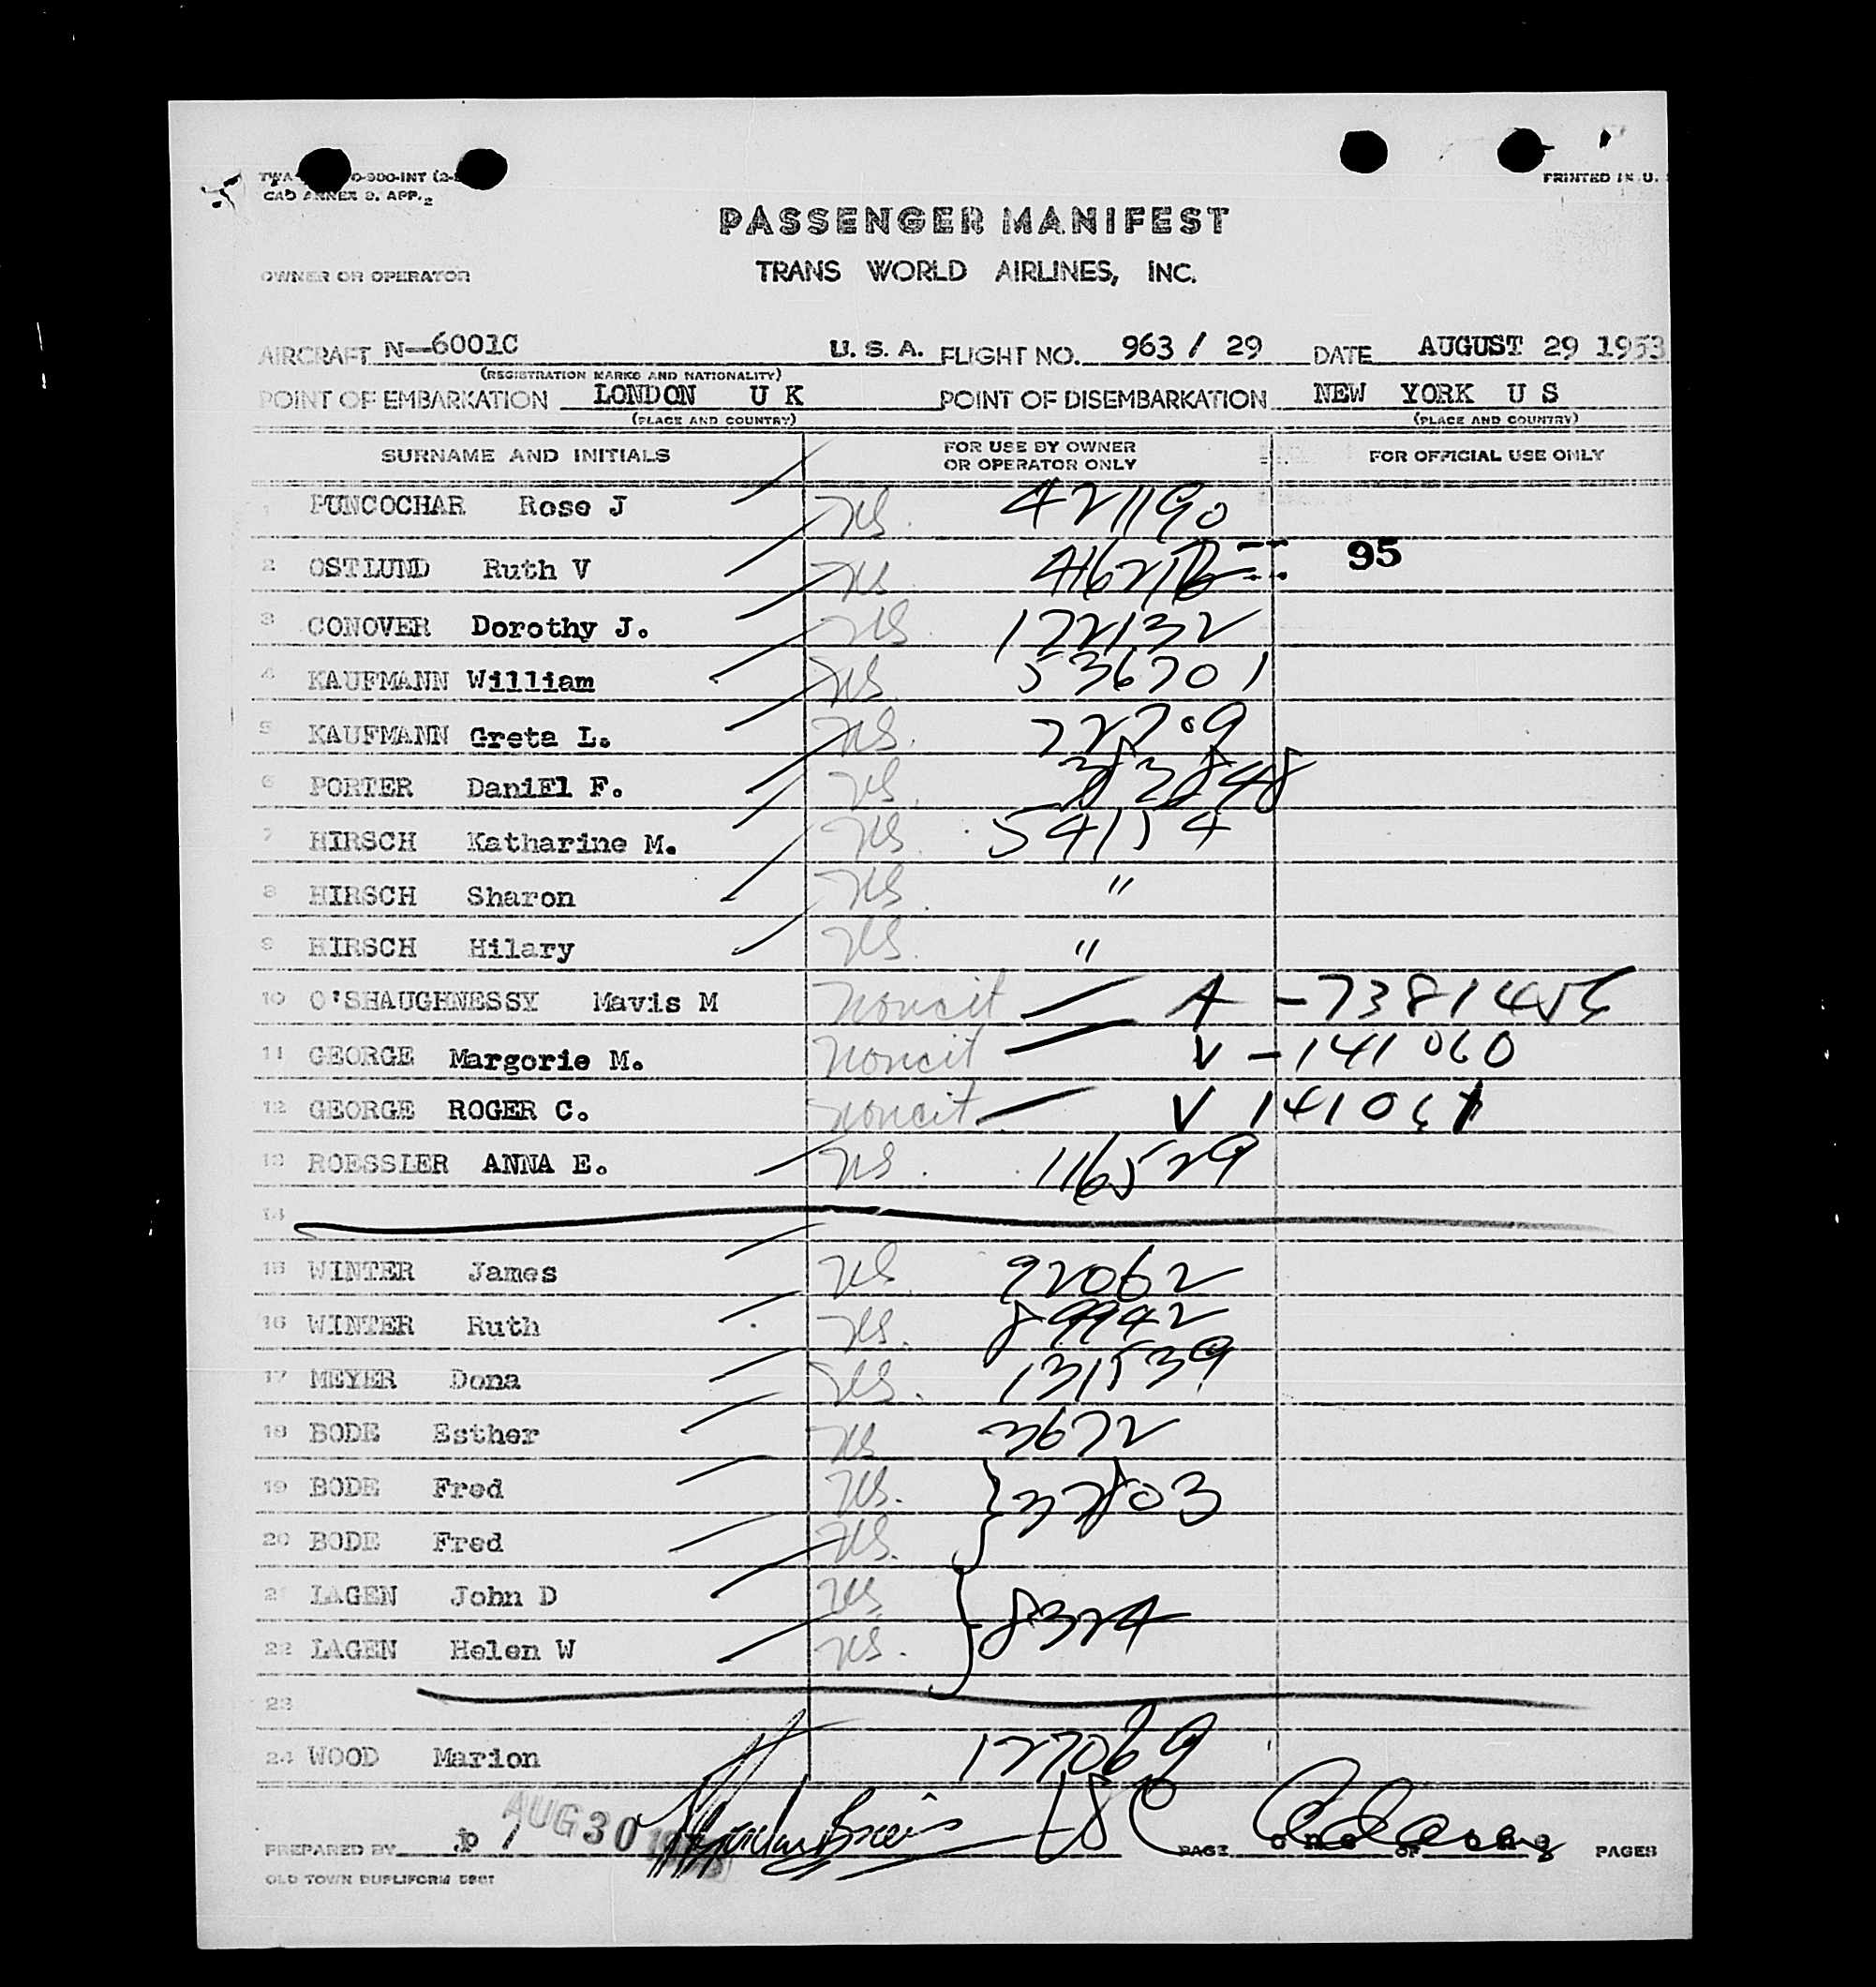 CAB ANNEX 9. APP. 2
PRINTED IN U.
PASSENGER MANIFEST
OWNER OR OPERATOR TRANS WORLD AIRLINES, INC.
AIRCRAFT N-6001C U.S.A. FLIGHT NO. 963 / 29 DATE AUGUST 29 1953
(REGISTRATION MARKS AND NATIONALITY)
POINT OF EMBARKATION LONDON U K POINT OF DISEMBARKATION NEW YORK U S
(PLACE AND COUNTRY) (PLACE AND COUNTRY)
SURNAME AND INITIALS FOR USE BY OWNER OR OPERATOR ONLY FOR OFFICIAL USE ONLY
1 PUNCOCHAR Rose J US. 421190
2 OSTLUND Ruth V US 95
3 CONOVER Dorothy J. US. 172132
4 KAUFMANN William US. 536701
5 KAUFMANN Greta L. US. 22709
6 PORTER DaniEl F. US.
7 HIRSCH Katharine M. US. 54154
8 HIRSCH Sharon US. "
9 HIRSCH Hilary US. "
10 O'SHAUGHNESSY Mavis M Noncit A-7381456
11 GEORGE Margorie M. Noncit V-141060
12 GEORGE ROGER C. Noncit V 141061
13 ROESSLER ANNA E. US. 116529
14
15 WINTER James US 92062
16 WINTER Ruth US. 89942
17 MEYER Dona US. 131539
18 BODE Esther US 3672
19 BODE Fred US. 37803
20 BODE Fred US.
21 LAGEN John D US 8324
22 LAGEN Helen W US.
23
24 WOOD Marion 127069
AUG 30 1953
PREPARED BY jp PAGE one OF one PAGES
OLD TOWN DUPLIFORM